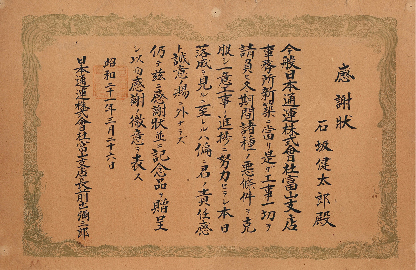 感謝狀
石坂健太郎殿
今般日本通運株式會社富山支店
事務所新築ニ當リ是ガ工事一切ヲ
請負ヒ短期間諸種ノ悪條件ヲ克
服シ意工事ノ進捗ニ努力セラレ本日
落成ヲ見ルニ至レルハ偏ニ君ノ責任感
ト誠意ノ賜ニ外ナラズ
仍テ玆ニ感謝狀並ニ記念品ヲ贈呈
シ以テ感謝ノ微意ヲ表ス
昭和二十一年三月二十六日
日本通運株式會社富山支店長